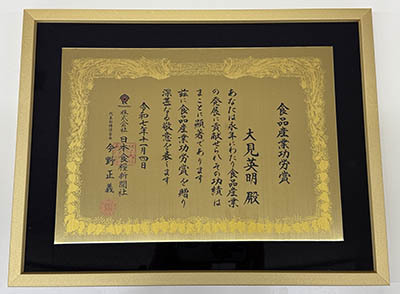 食品産業功労賞
大見英明 殿
あなたは永年にわたり食品産業
の発展に貢献せられその功績は
まことに顕著であります
茲に食品産業功労賞を贈り
深甚なる敬意を表します
令和七年十一月四日
株式会社 日本食糧新聞社
代表取締役会長 今野正義